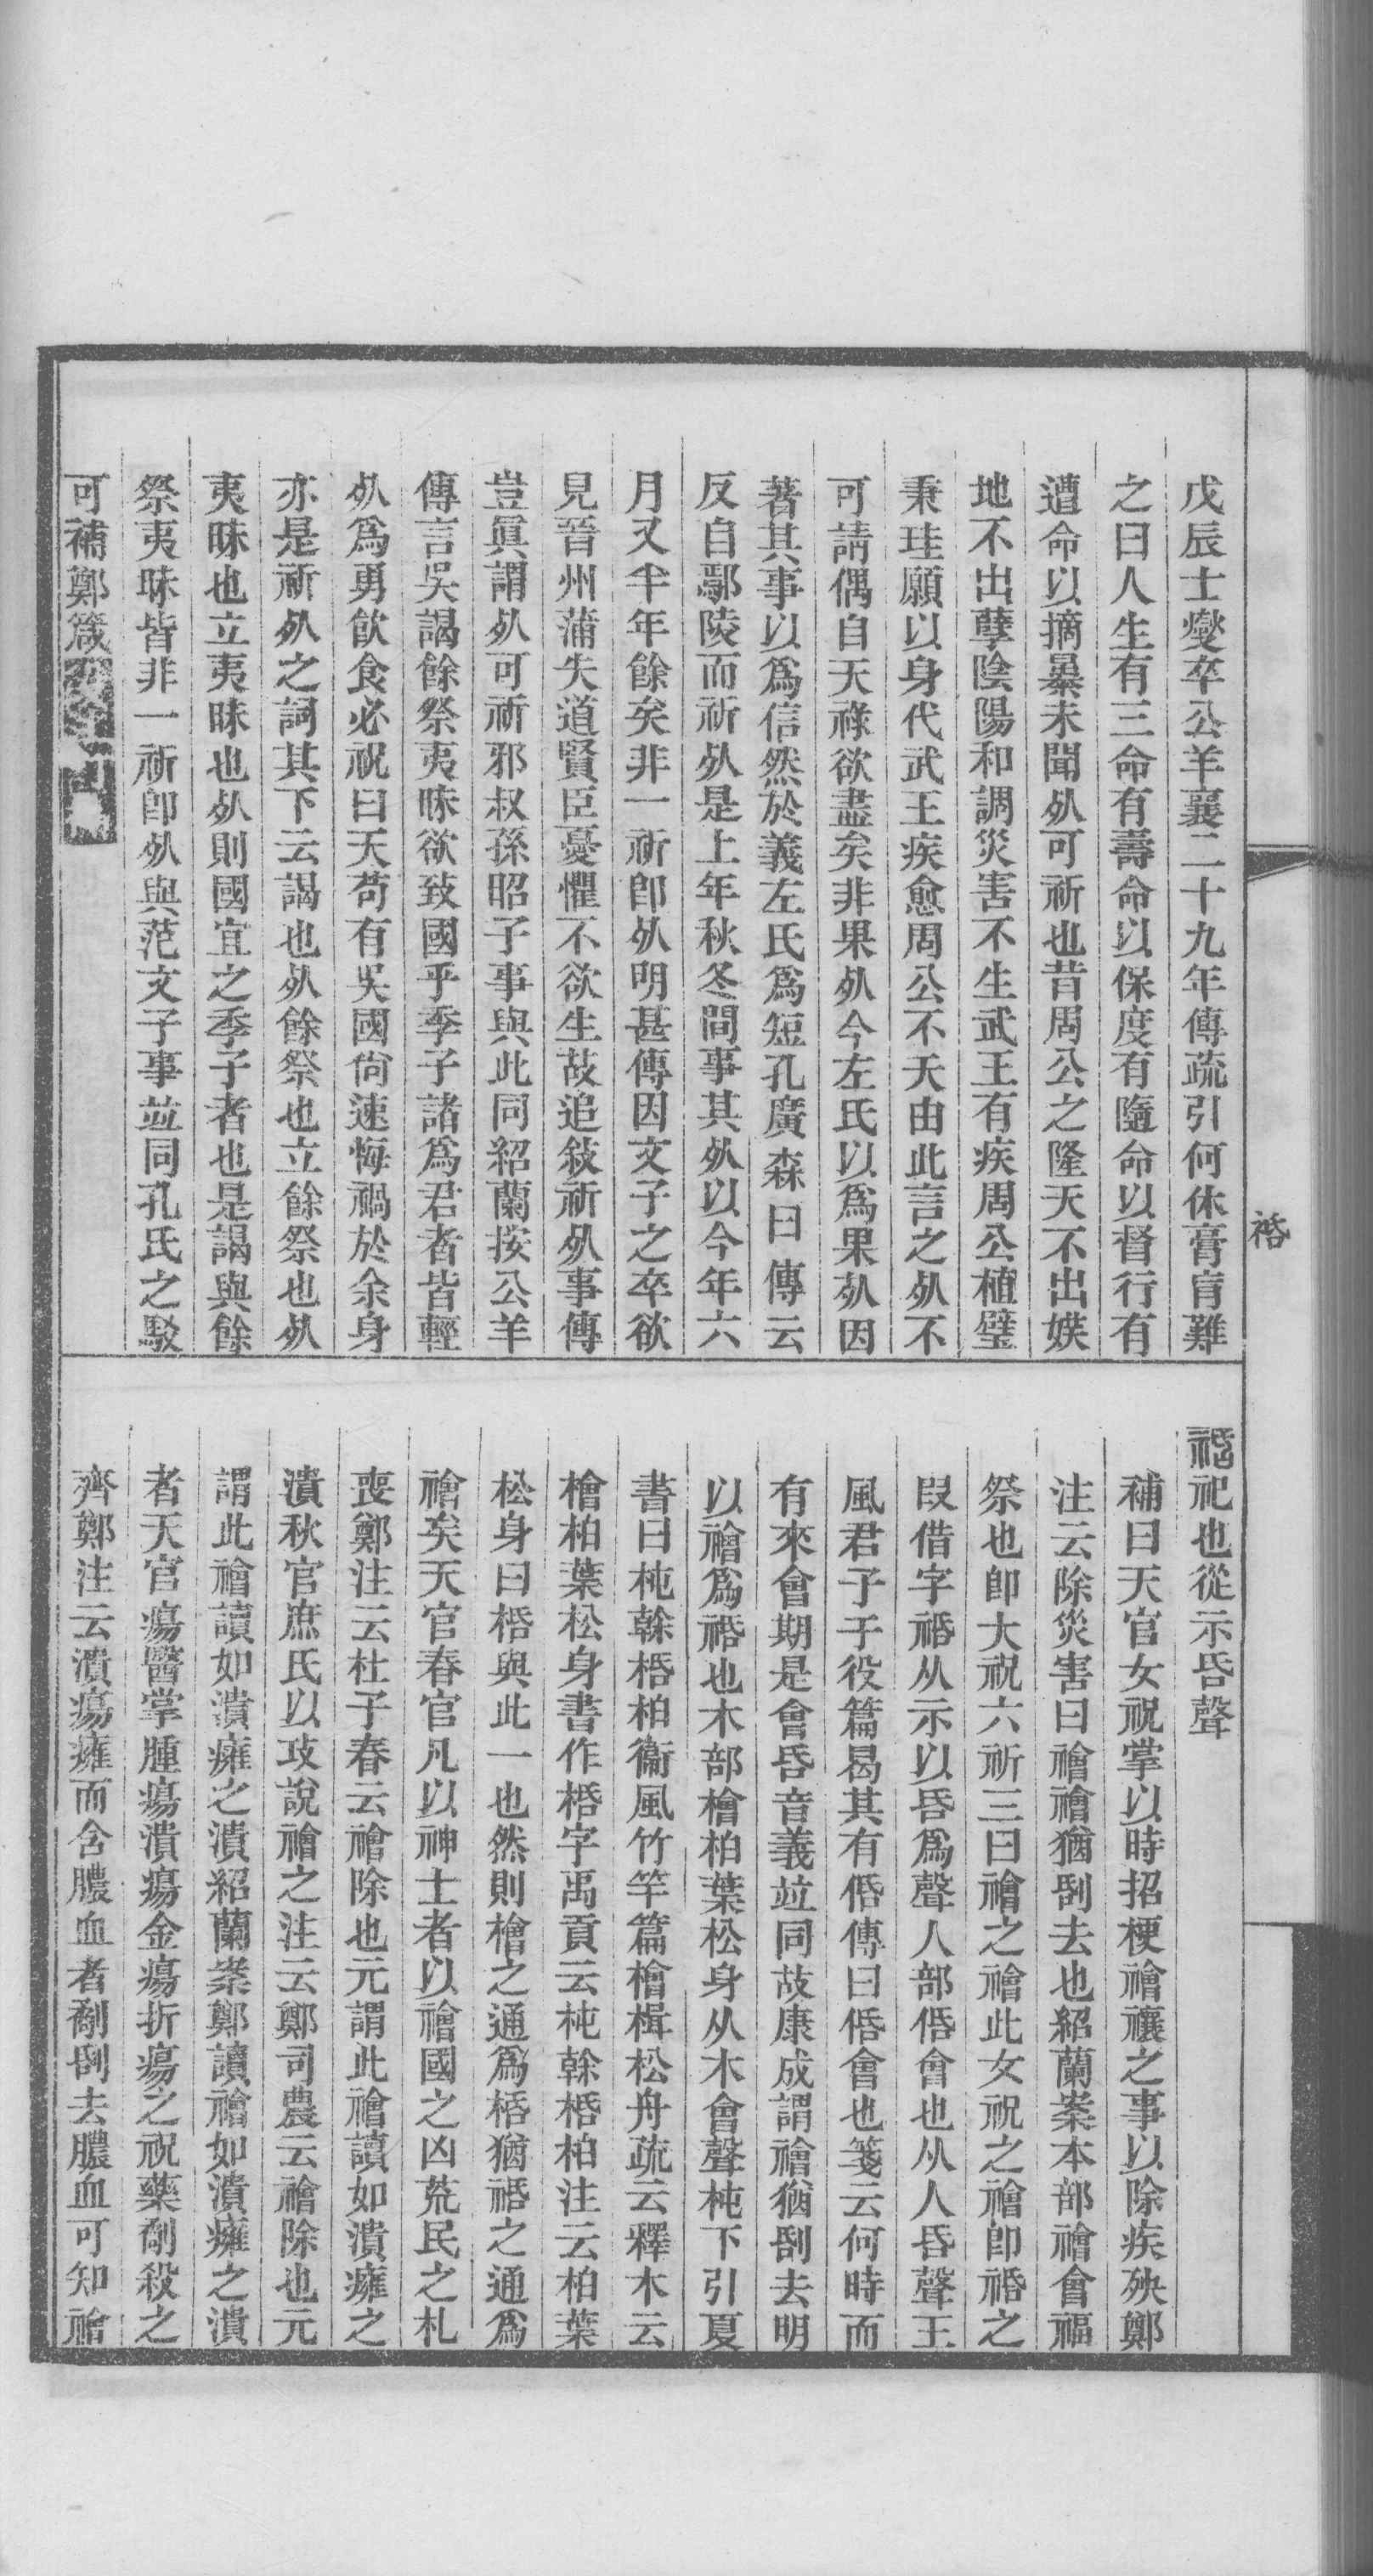 戊辰士燮卒公羊襄二十九年傳疏引何休膏肓難
之曰人生有三命有壽命以保度有隨命以督行有
遭命以摘暴未聞死可祈也昔周公之隆天不出妖
地不出孽陰陽和調災害不生武王有疾周公植璧
秉珪願以身代武王疾愈周公不夭由此言之死不
可請偶自天祿欲盡矣非果死今左氏以爲果死因
著其事以爲信然於義左氏爲短孔廣森曰傳云
反自鄢陵而祈死是上年秋冬間事其死以今年六
月又半年餘矣非一祈卽死明甚傳因文子之卒欲
見晉州蒲失道賢臣憂懼不欲生故追敍祈死事傳
豈眞謂死可祈邪叔孫昭子事與此同紹蘭按公羊
傳言吳謁餘祭夷昧欲致國乎季子諸爲君者皆輕
死爲勇飮食必祝曰天苟有吳國尙速悔禍於余身
亦是祈死之詞其下云謁也死餘祭也立餘祭也死
夷昧也立夷昧也死則國宜之季子者也是謁與餘
祭夷昧皆非一祈卽死與范文子事竝同孔氏之駁
可補鄭箴
祰
䄆祀也從示昏聲
補曰天官女祝掌以時招梗禬禳之事以除疾殃鄭
注云除災害曰禬禬猶刮去也紹蘭案本部禬會福
祭也卽大祝六祈三曰禬之禬此女祝之禬卽䄆之
叚借字䄆从示以昏爲聲人部佸會也从人昏聲王
風君子于役篇曷其有佸傳曰佸會也箋云何時而
有來會期是會昏音義竝同故康成謂禬猶刮去明
以禬爲䄆也木部檜柏葉松身从木會聲杶下引夏
書曰杶榦栝柏衞風竹竿篇檜楫松舟疏云釋木云
檜柏葉松身書作栝字禹貢云杶榦栝柏注云柏葉
松身曰栝與此一也然則檜之通爲栝猶䄆之通爲
禬矣天官春官凡以神士者以禬國之凶荒民之札
喪鄭注云杜子春云禬除也元謂此禬讀如潰癰之
潰秋官庶氏以攻說禬之注云鄭司農云禬除也元
謂此禬讀如潰癰之潰紹蘭案鄭讀禬如潰癰之潰
者天官瘍醫掌腫瘍潰瘍金瘍折瘍之祝藥劀殺之
齊鄭注云潰瘍癰而含膿血者劀刮去膿血可知禬